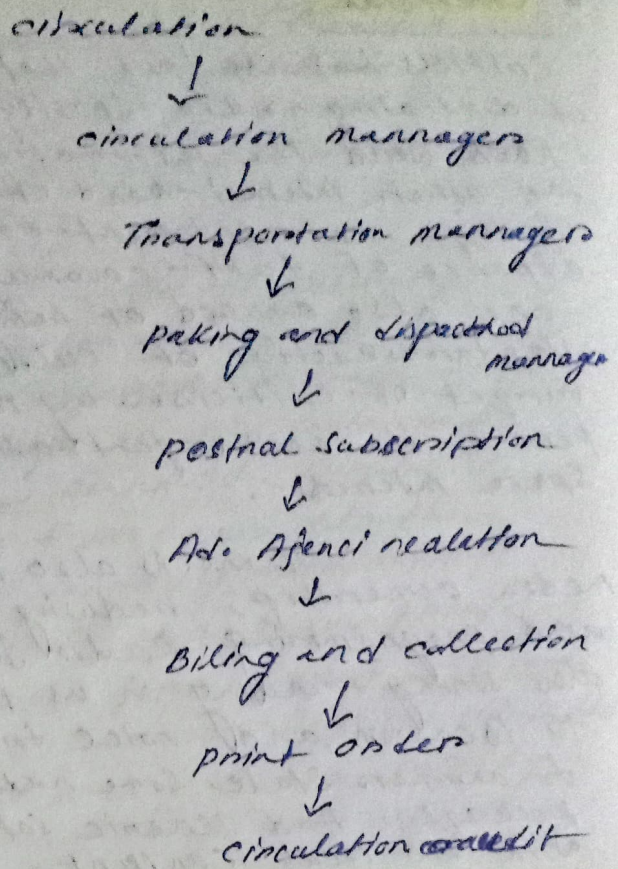 circulation
↓
circulation mannager
↓
Transportation mannager
↓
paking and dispacthod
mannager
↓
postnal subscription
↓
Ad. Ajenci realation
↓
Biling and collection
↓
print order
↓
circulation audit